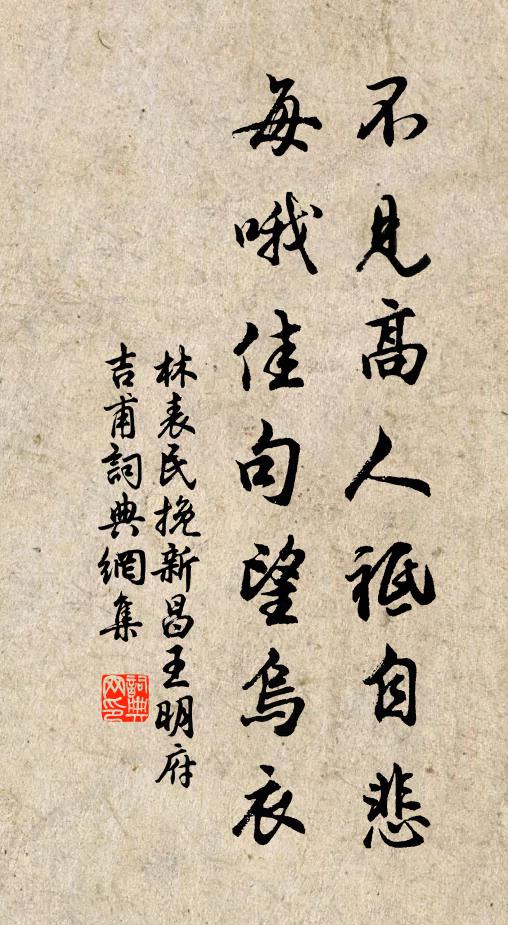 不見高人祗自悲
每哦佳句望烏衣
林表民挽新昌王明府
吉甫詞典網集
詞典網印